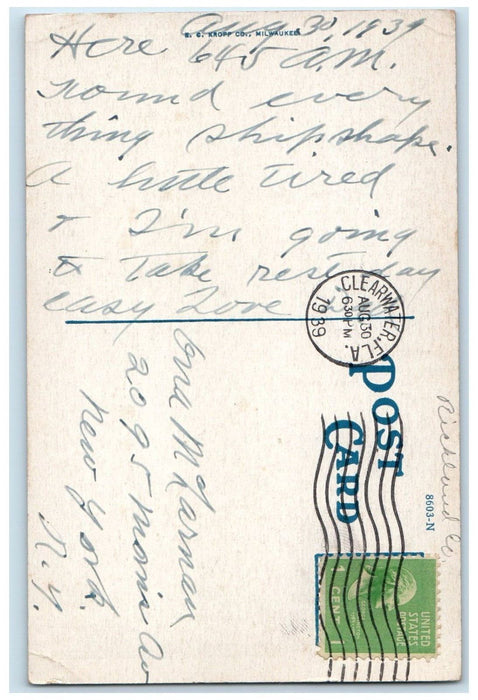 Aug 30, 1939
E. C. KROPP CO., MILWAUKEE
Here 645 A.M.
round every
thing shipshape.
A little tired
+ I'm going
to take rest day
easy Love
CLEARWATER, FLA.
AUG 30
630 PM
1939
POST
CARD
8603-N
Richland Co.
UNITED
STATES
POSTAGE
1 CENT 1
Ona McLarnan
2095 Morris Av
New York.
N.Y.